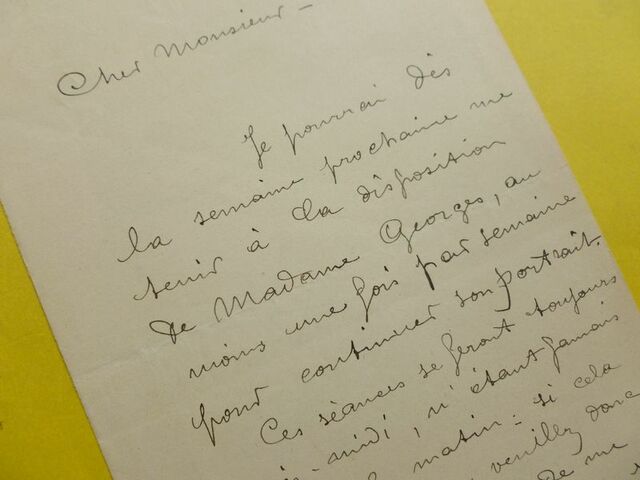 Cher Monsieur –
Je pourrai dès
la semaine prochaine me
tenir à la disposition
de Madame Georges, au
moins une fois par semaine
pour continuer son portrait.
Ces séances se feront toujours
- midi, n'étant jamais
matin - si cela
veuillez donc
de me